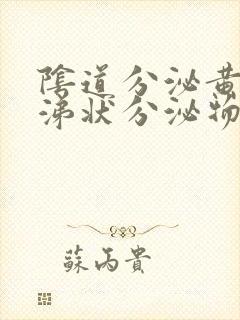 陰道分泌黃
涕狀分泌物
蘇丙貴